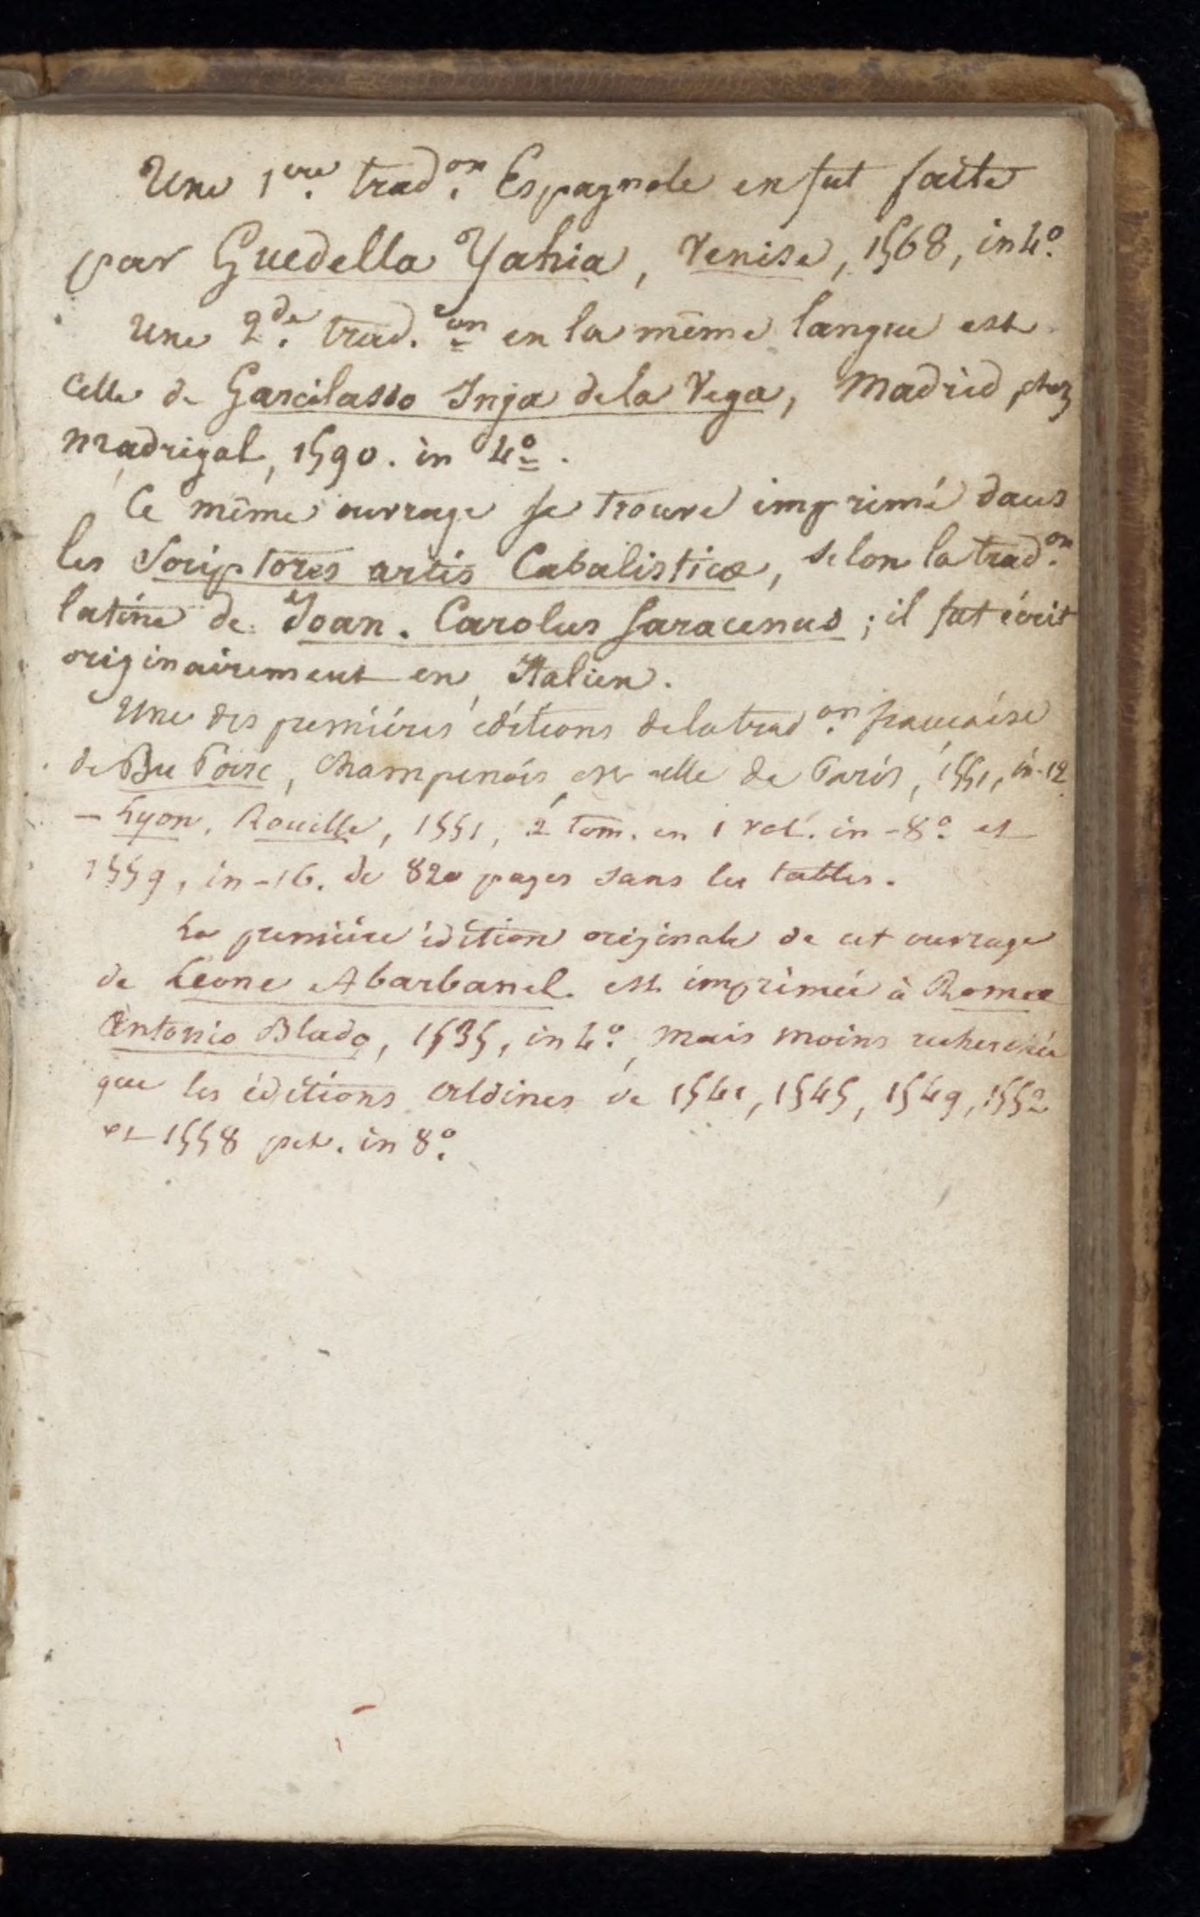 Une 1ere. trad.on Espagnole en fut faite
par Guedella Yahia, Venise, 1568, in 4º.
Une 2.de trad.on en la même langue est
celle de Garcilasso Inga de la Vega, Madrid, chez
Madrigal, 1590. in 4º.
Ce même ouvrage se trouve imprimé dans
les Scriptores artis Cabalisticæ, selon la trad.on
latine de Joan. Carolus Saracenus; il fut écrit
originairement en Italien.
Une des premiéres éditions de la trad.on francaise
de Du Parc, Champenois, est celle de Paris, 1551, in-12.
– Lyon, Rouille, 1551, 2 tom. en 1 vol. in-8º. et
1559, in-16. de 820 pages sans les tables.
La premiére édition originale de cet ouvrage
de Léone Abarbanel est imprimée à Rome
Antonio Blado, 1535, in 4º, mais moins recherchée
que les éditions Aldines de 1541, 1545, 1549, 1552
et 1558 pet. in 8º.